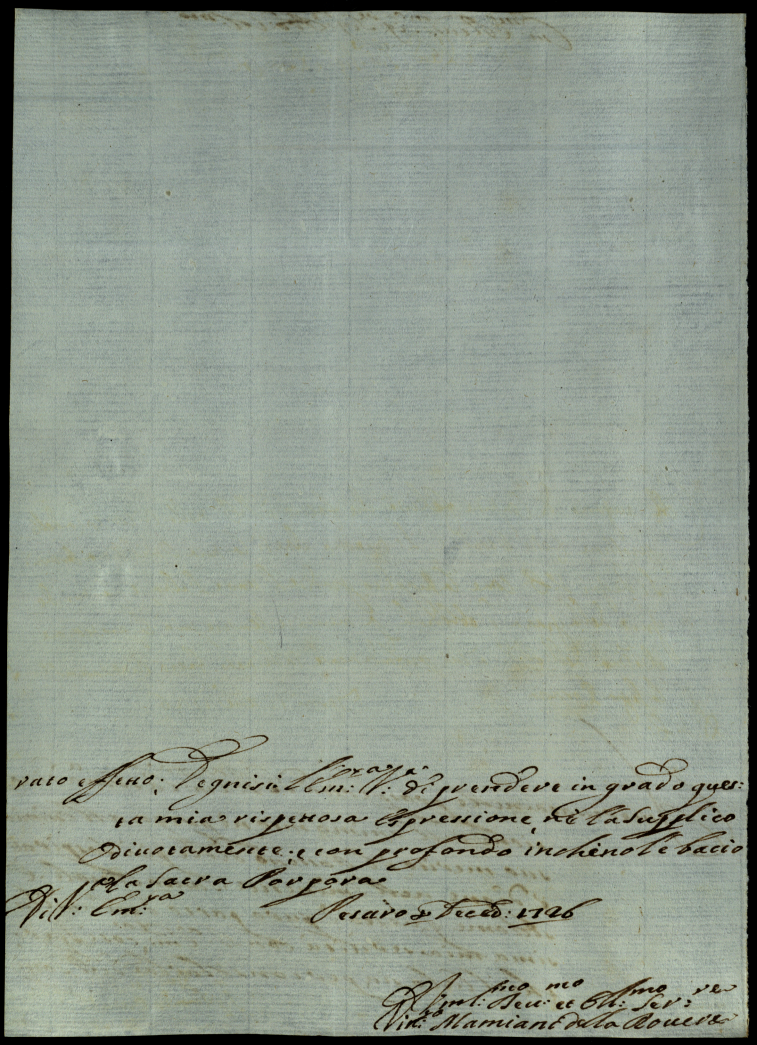 rato effetto. Degnisi l'Em:ᵃ V.ᵃ di prendere in grado ques:
ta mia rispettosa espressione, ne la supplico
divotamente; e con profondo inchino le bacio
la Sacra Porpora
Di V. Em:ᶻᵃ Pesaro Deced: 1726
Um:ᵐᵒ Deu:ᵐᵒ et Obl:ᵐᵒ Ser:ʳᵉ
Mamiani della Rovere